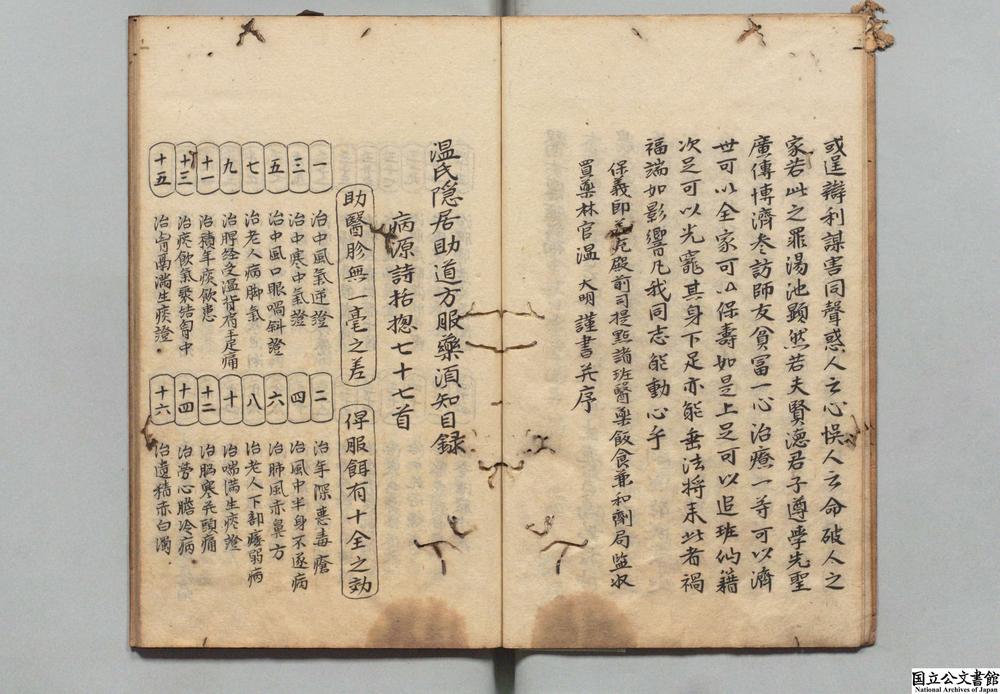 或逞辯利謀害同聲惑人之心悞人之命破人之
家若此之罪湯池顯然若夫賢德君子遵學先聖
廣傳博濟叅訪師友貧冨一心治療一等可以濟
世可以全家可以保壽如是上足可以追班仙籍
次足可以光寵其身下足亦能垂法將来此者禍
福端如影響凡我同志能動心乎
保義郎殿前司提點諸班醫藥飯食兼和劑局監收
買藥林官温 大明謹書并序
温氏隠居助道方服藥湏知目録
病源詩括揔七十七首
助醫胗無一毫之差
俘服餌有十全之効
一 治中風氣逆證
二 治年深悪毒瘡
三 治中寒中氣證
四 治風中半身不遂病
五 治中風口眼喎斜證
六 治肺風赤鼻方
七 治老人病脚氣
八 治老人下部痿弱病
九 治脾経受温背痛
十 治喘満生痰證
十一 治積年痰飲患
十二 治腦寒并頭痛
十三 治痰飲氣聚結胷中
十四 治勞心膽冷病
十五 治胷膈満生痰證
十六 治遺精赤白濁
国立公文書館
National Archives of Japan